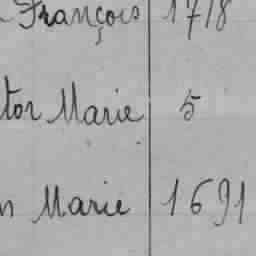 François 1718
tor Marie 5
n Marie 1691